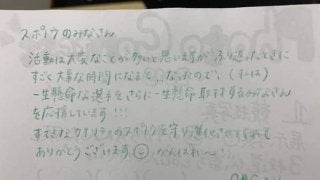 スポイウのみなさん
活動は大変なことが多いと思いますが、ふり返ったときに
すごく大事な時間になるし、なったので、(すーは)
一生懸命な選手をさらに一生懸命取材するみなさん
を応援しています!!!
すてきな のスポイウを 進化させてくれて
ありがとうございます☺ がんばれ〜!